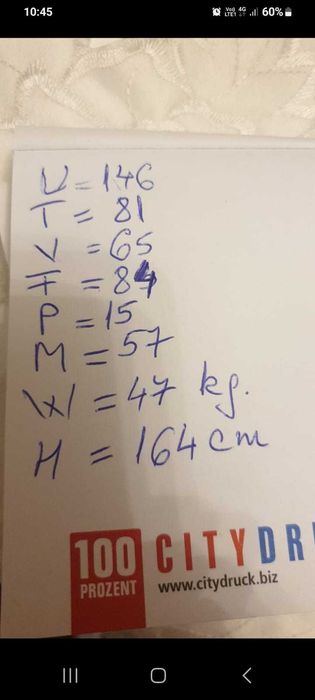 10:45
Vo)) 4G
LTE1
60%
U = 146
T = 81
V = 65
F = 84
P = 15
M = 57
W = 47 kg.
H = 164 cm
100
PROZENT
CITYDR
www.citydruck.biz